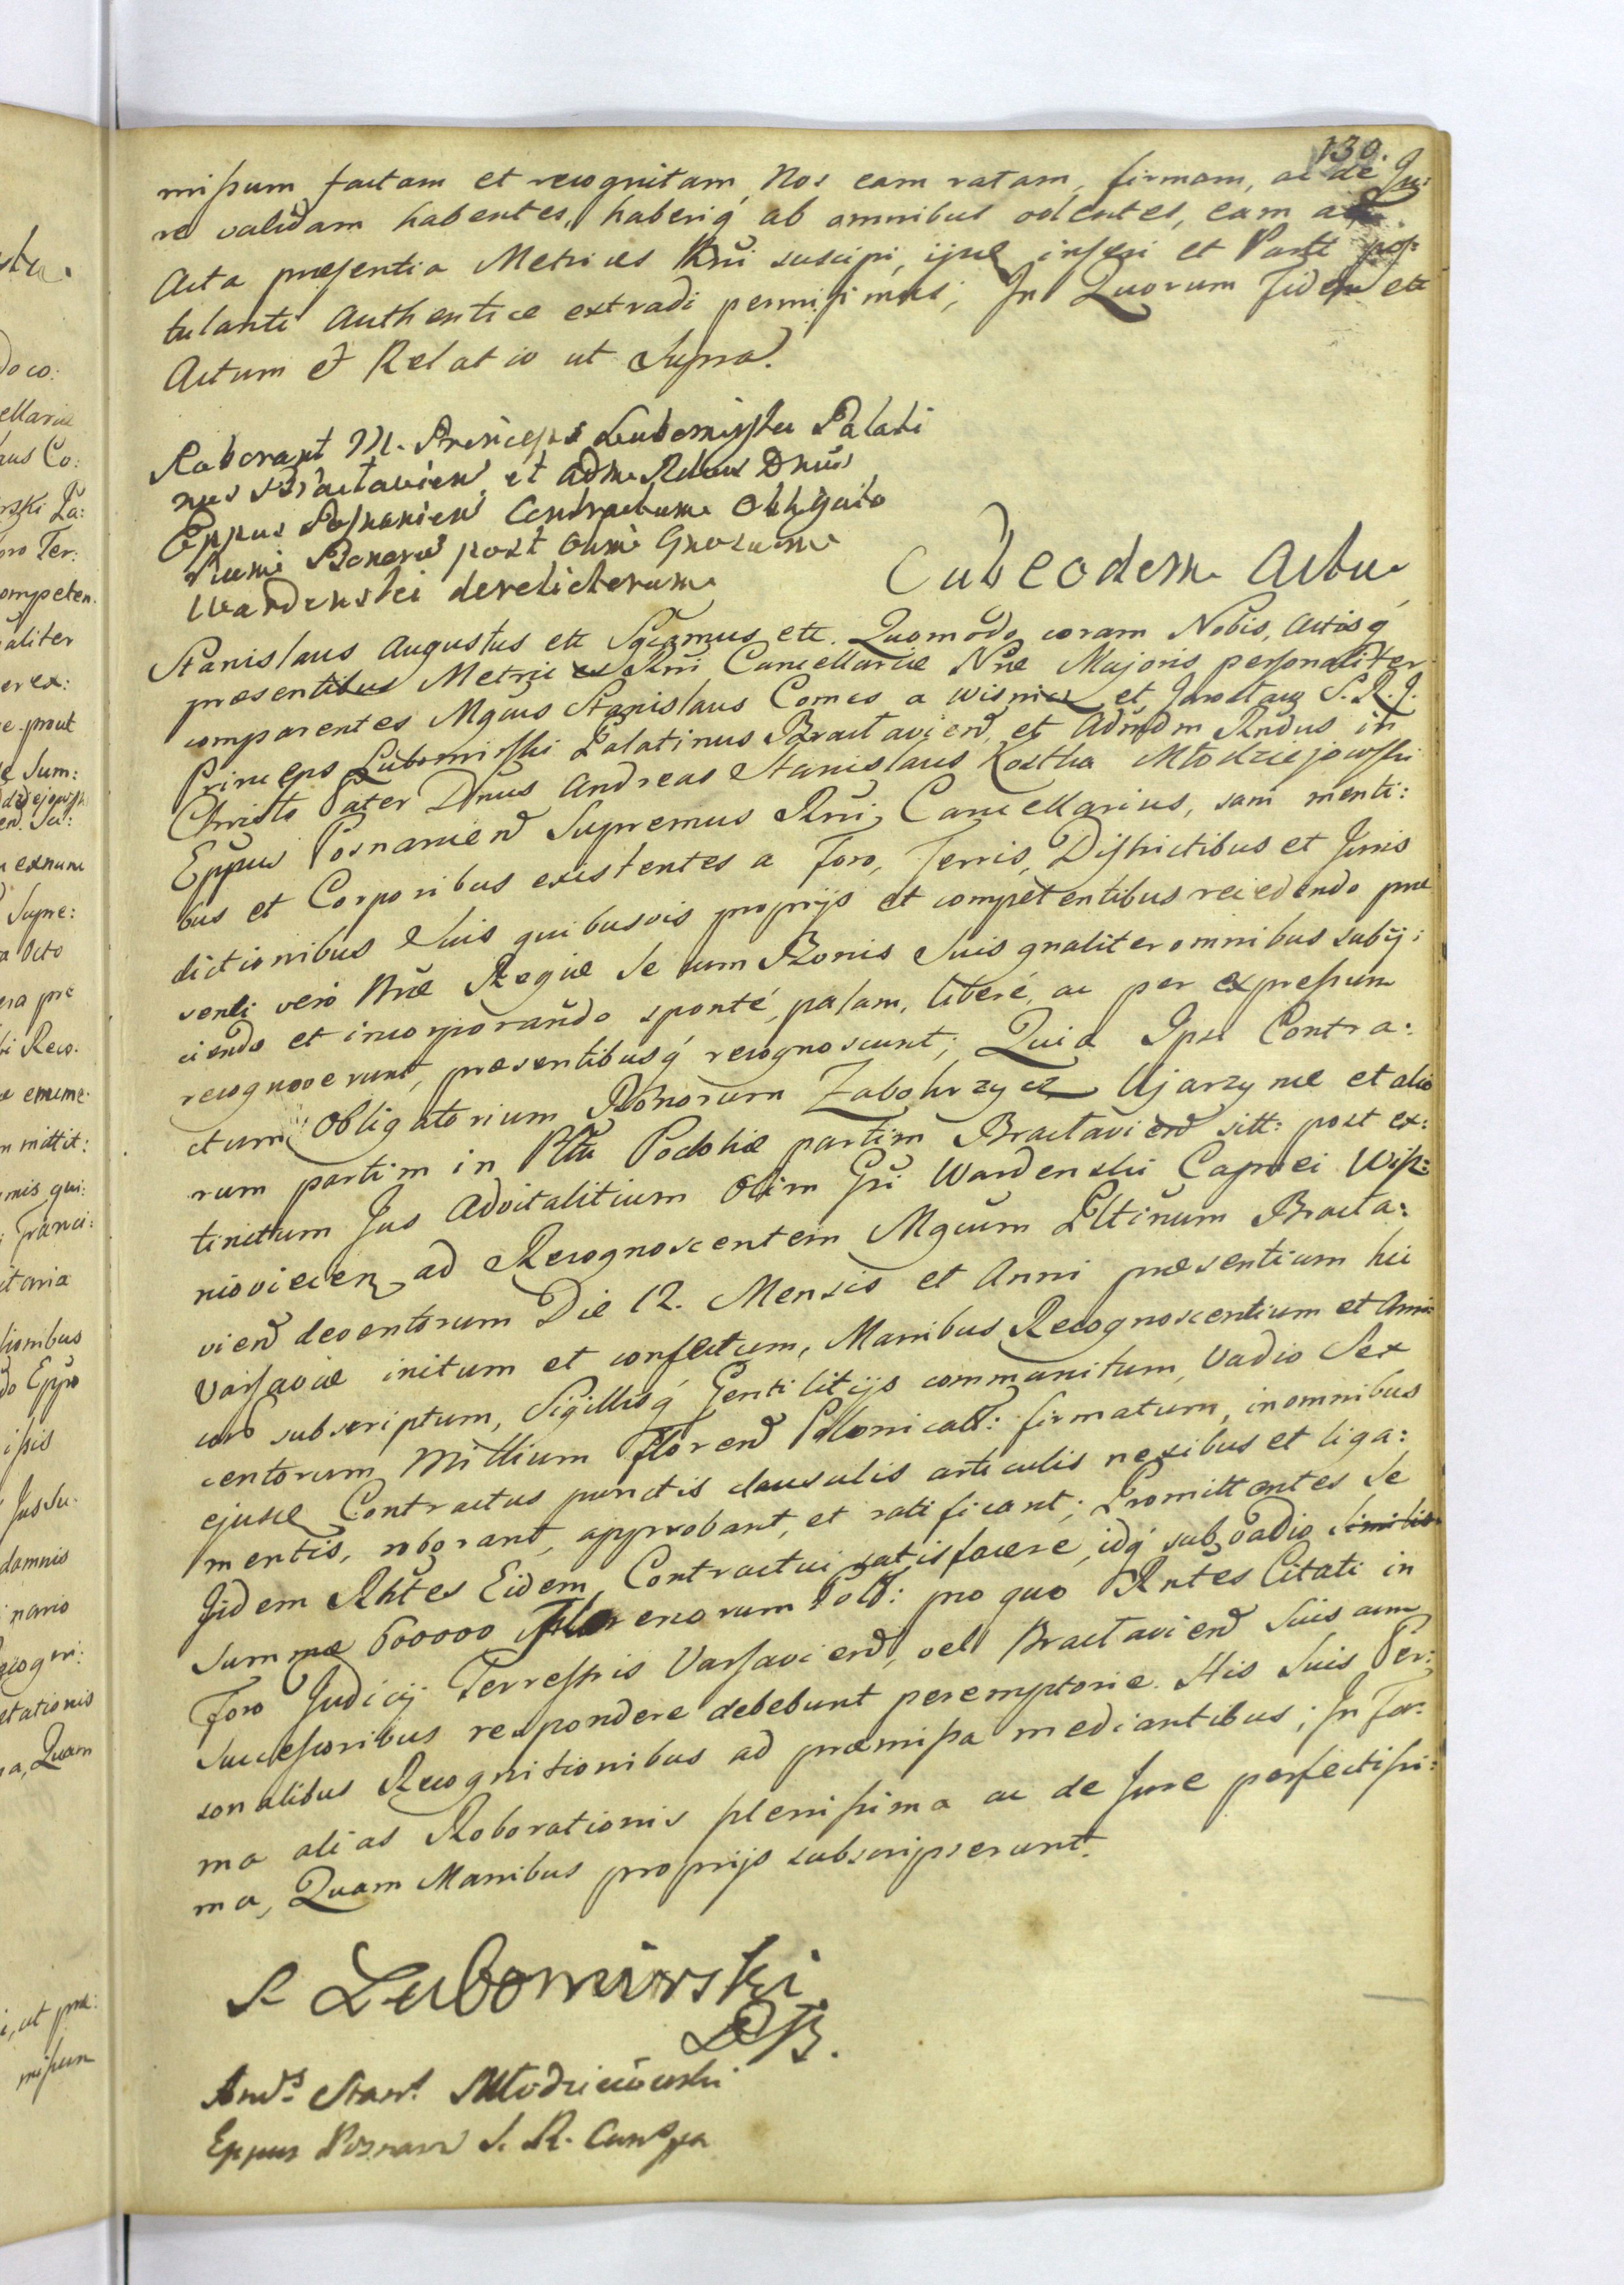 130.
missum factam et recognitam, Nos eam ratam, firmam, ac de Ju:
re validam habentes, haberiq́ ab omnibus volentes, eam ad
Acta præsentia Metrices Rñi suscipi, ijsq́ inseri et Parti pos:
tulanti Authentice extradi permisimus; In Quorum Fidem ett
Actum et Relatio ut Supra.
Roborant M. Princeps Lubomirski Palati
nus Bractavien, et Adm. Rdus Dnus
Eppus Posnanien Contractum Obligato
rium Bonorũ post olim Gnosum
Wardenski derelictorum
Sub eodem Actu
Stanislaus Augustus ett Sgcamus ett. Quomodo coram Nobis, Actisq́
præsentibus Metrices Rñi Cancellariæ Nræ Majoris personaliter
comparentes Mgcus Stanislaus Comes a Wisnicz et Jarosław S. R. J.
Princeps Lubomirski Palatinus Bractavien, et Admdm Rndus in
Christo Pater Dnus Andreas Stanislaus Kostka Młodziejowski
Eppus Posnanien Supremus Rñi Cancellarius, sani menti:
bus et Corporibus existentes a Foro, Terris, Districtibus et Juris
dictionibus Suis quibusvis proprijs et competentibus recedendo præ
senti verò Nræ Regiæ se cum Bonis Suis gnaliter omnibus subij:
ciendo et incorporando sponté, palam, liberé, ac per expressum
recognoverunt, præsentibusq́ recognoscunt; Quia Ipsi Contra:
ctum Obligatorium Bonorum Zabokrzycz Ujarzyńce et alio
rum partim in Pltu Podoliæ partim Bractavien sitt: post ex:
tinctum Jus Advitalitium olim Gsi Wardenski Capnei Wisz:
nioviecen ad Recognoscentem Mgcum Pltinum Bracta:
vien deventorum Die 12. Mensis et Anni præsentium hic
Varsaviæ initum et confectum, Manibus Recognoscentium et Ami:
corũ subscriptum, Sigillisq́ Gentilitijs communitum, Vadio Sex
centorum Millium Floren Polonicalt: firmatum, in omnibus
ejusce Contractus punctis clausulis articulis nexibus et liga:
mentis, roborant, approbant, et ratificant; Promittentes Se
Jidem Rñtes Eidem Contractui satisfacere, idq́ sub vadio similis
Summæ 600000 Florenorum Polt: pro quo Rñtes Citati in
Foro Judicij Terrestris Varsavien, vel Bractavien Suis cum
Successoribus respondere debebunt peremptorie. His Suis Per:
sonalibus Recognitionibus ad præmissa mediantibus; In For:
ma alias Roborationis plenissima ac de Jure perfectissi:
ma, Quam Manibus proprijs subscripserunt.
S Lubomirski
PB.
And.s Stan.s Młodzieiowski
Eppus Posnan S. R. Canc